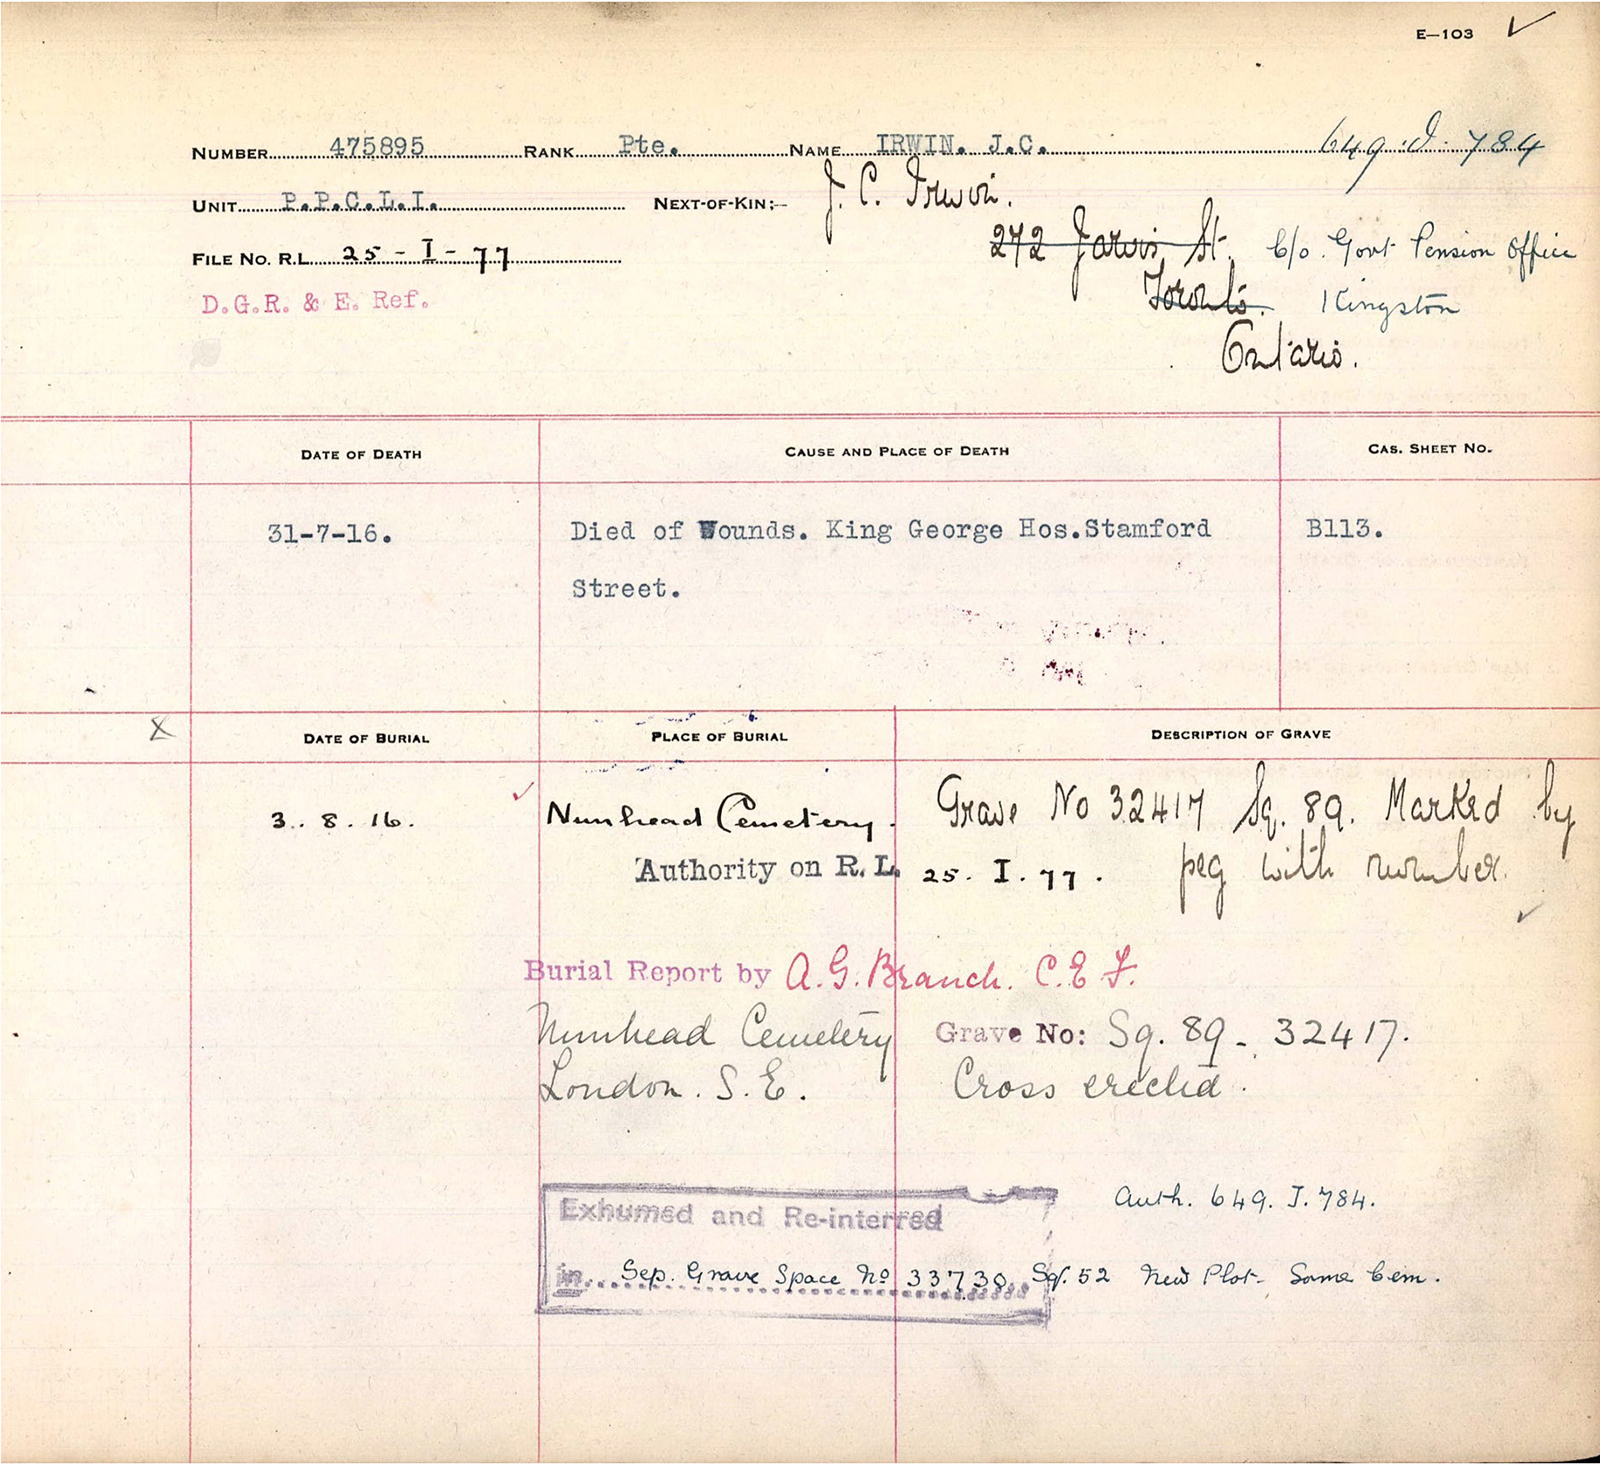 E—103 ✓
NUMBER 475895 RANK Pte. NAME IRWIN. J.C. 649.I.784
UNIT P.P.C.L.I. NEXT-OF-KIN;— J. C. Irwin.
272 Jarvis St. C/o. Govt Pension Office
FILE NO. R.L. 25 - I - 77
D.G.R. & E. Ref. Toronto. Kingston
Ontario.
DATE OF DEATH CAUSE AND PLACE OF DEATH CAS. SHEET NO.
31-7-16. Died of Wounds. King George Hos.Stamford B113.
Street.
X DATE OF BURIAL PLACE OF BURIAL DESCRIPTION OF GRAVE
3. 8. 16. Nunhead Cemetery. Grave No 32417 Sq. 89. Marked by
Authority on R.L. 25. I. 77. peg with number.
Burial Report by A.G. Branch. C.E.F.
Nunhead Cemetery Grave No: Sq. 89 - 32417.
London. S.E. Cross erected.
Exhumed and Re-interred Auth. 649. I. 784.
in Sep. Grave Space No 33730. Sq. 52 New Plot - Same Cem.